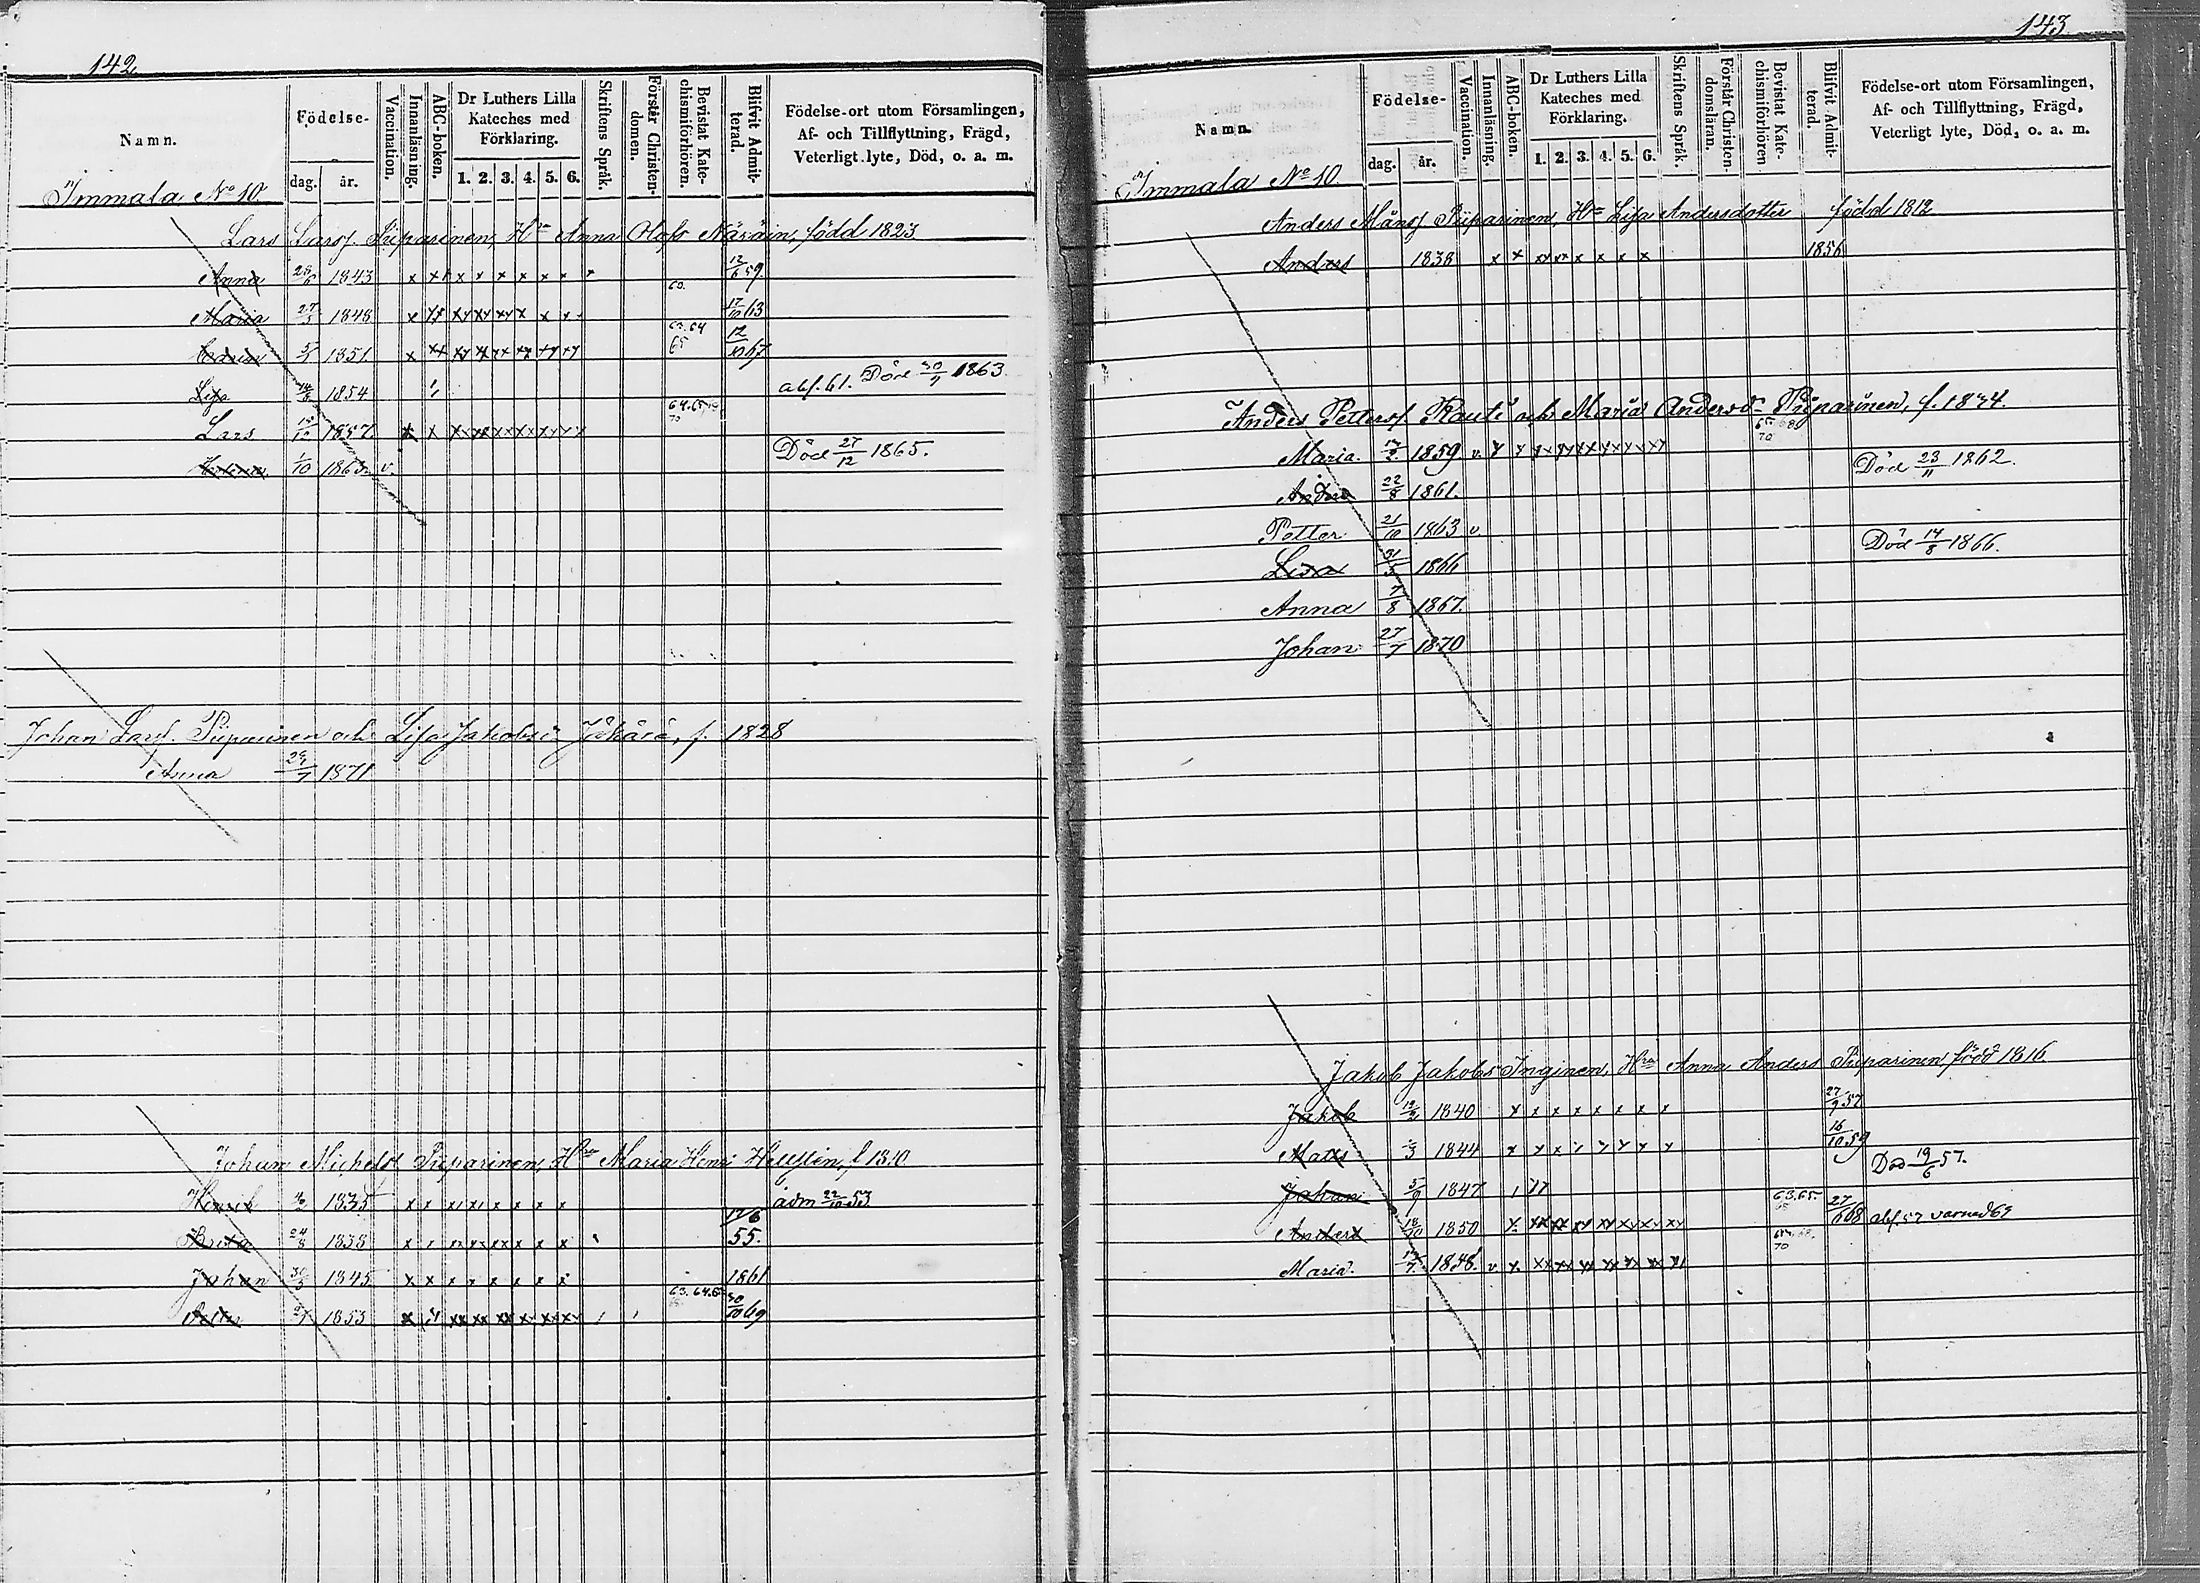 142
Namn.
Födelse-
dag.
år.
Vaccination.
Innanläsning.
ABC-boken.
Dr Luthers Lilla
Kateches med
Förklaring.
1. 2. 3. 4. 5. 6.
Skriftens Språk.
Förstår Christen-
domen.
Bevistat Kate-
chismiförhören.
Blifvit Admit-
terad.
Födelse-ort utom Församlingen,
Af- och Tillflyttning, Frägd,
Veterligt lyte, Död, o. a. m.
Immala No 10.
Lars Larsf. Piiparinen, Hu Anna Olofs Näräin, född 1823
Anna 1843 x x x x x x x x x 60. 12/6 59.
Maria 27/3 1848 17/10 63
1851. x 63.64 65 12/10 67
Lisa 1854 abs. 61. Död 30/7 1863.
Lars 1857 70
1/10 1863 v. Död 27/12 1865.
Johan Larsf. Piiparinen och Lisa Jakobsd. f. 1828
Anna 1871
Johan Michelsf Piiparinen, Hu Maria Henr f 1810
Henrik 1835 x x x x x x adm 22/10 53.
Brita 24/8 1838 12/6 55.
Johan 1845 x x x x x x x x 1861
1853 63.64.65 30/10 69
143
Namn.
Födelse-
dag.
år.
Vaccination.
Innanläsning.
ABC-boken.
Dr Luthers Lilla
Kateches med
Förklaring.
1. 2. 3. 4. 5. 6.
Skriftens Språk.
Förstår Christen-
domsläran.
Bevistat Kate-
chismiförhören
Blifvit Admit-
terad.
Födelse-ort utom Församlingen,
Af- och Tillflyttning, Frägd,
Veterligt lyte, Död, o. a. m.
Immala No 10.
Anders Månsf Piiparinen, Hu Lisa Andersdotter född 1812
Anders 1838 x x xx xx x x x x 1856
Anders Pettersf. Rauti och Maria Andersd. Piiparinen, f. 1834.
Maria. 1859. v. 70
Anders 22/8 1861. Död 23/11 1862.
Petter 21/10 1863 v.
Lisa 31/5 1866 Död 14/8 1866.
Anna 7/8 1867.
Johan 27/7 1870
Jakob Jakobs Inginen, Hu Anna Anders Piiparinen, född 1816
Jakob 1840 x x x x x x x x 27/9 57
Mats 1844 16/10 59
Johan 5/9 1847 Död 19/6 57.
Anders 18/10 1850 63.65. 27/6 68 abs. 57 varnad 69
Maria. 1848. v 70